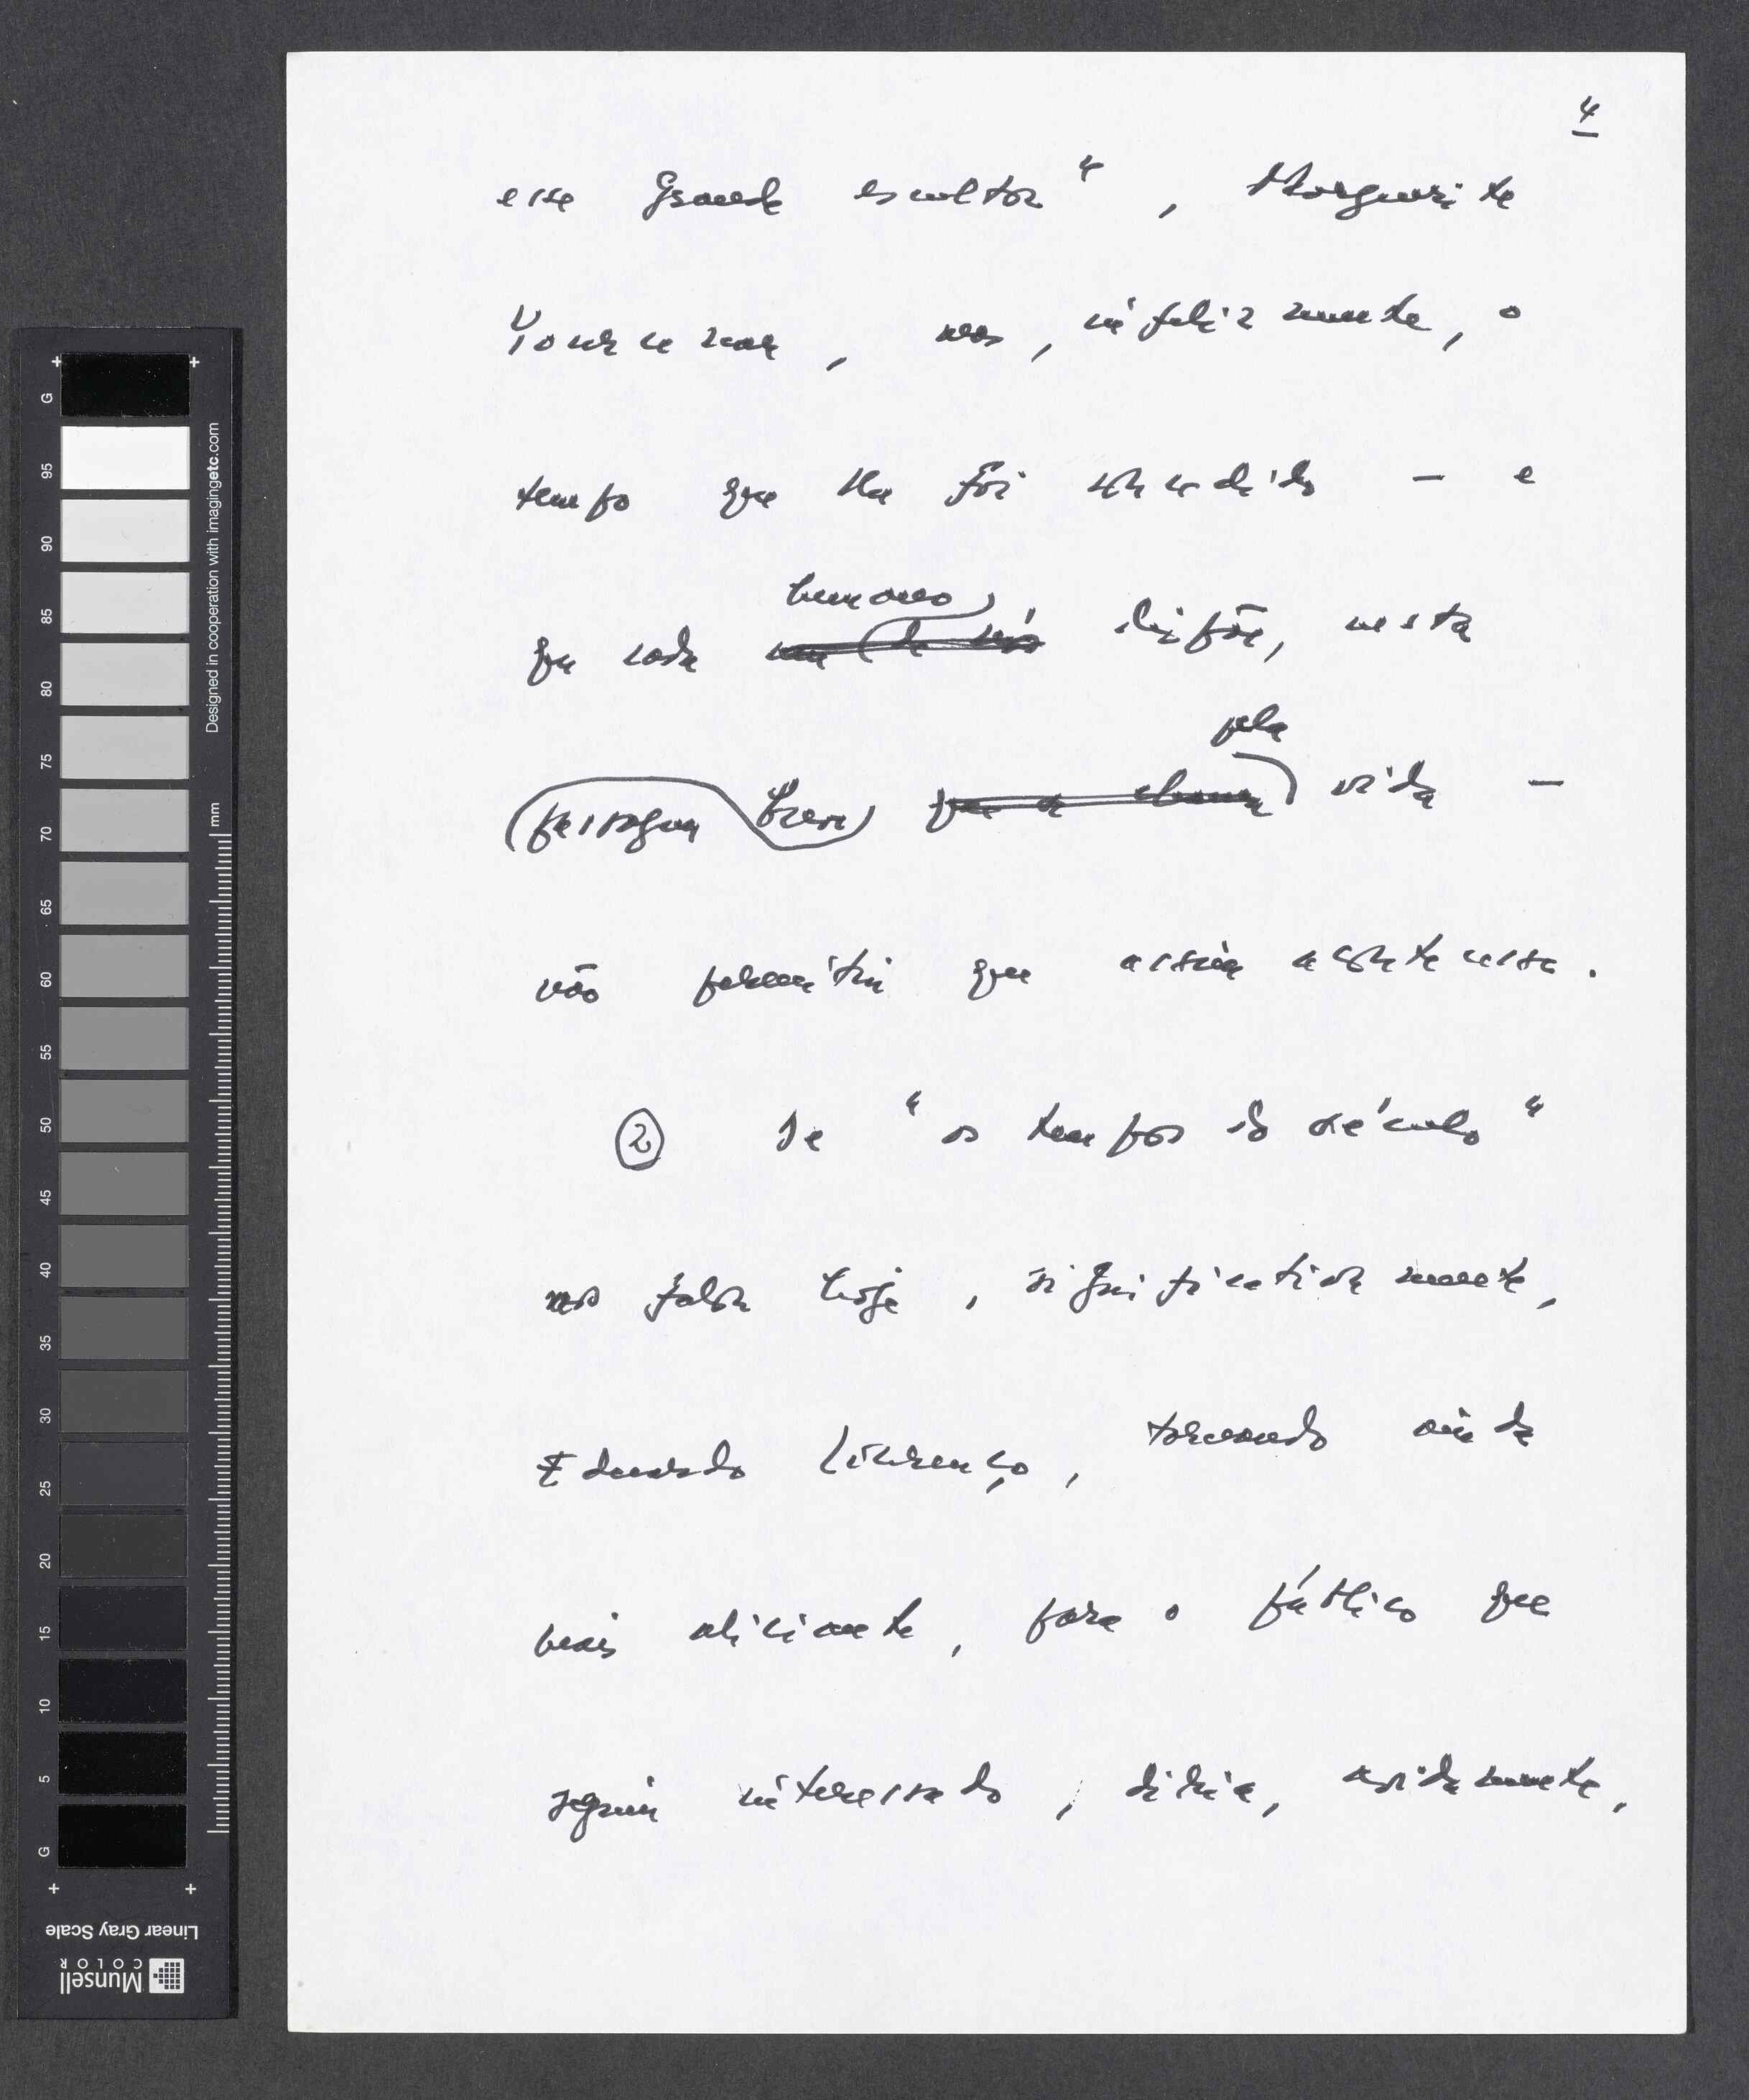 4
esse Grande escultor", Marguerite
Yourcenar, mas, infelizmente, o
tempo que lhe foi concedido – e
humano
que cada um de nós dispõe, nesta
pela
(passagem breve) que é chamada vida –
não permitiu que assim acontecesse.
② De "os tempos do século"
nos falou hoje, significativamente,
Eduardo Lourenço, tornando ainda
mais aliciante, para o público que
seguiu interessado, diria, avidamente,
G 95 90 85 80 75 70 65 60 55 50 45 40 35 30 25 20 15 10 5 G
Designed in cooperation with imagingetc.com
mm
Linear Gray Scale
Munsell
COLOR